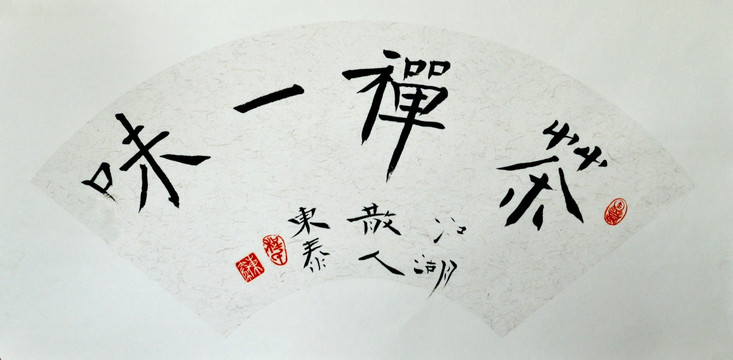 茶禪一味
江湖
散人
東泰